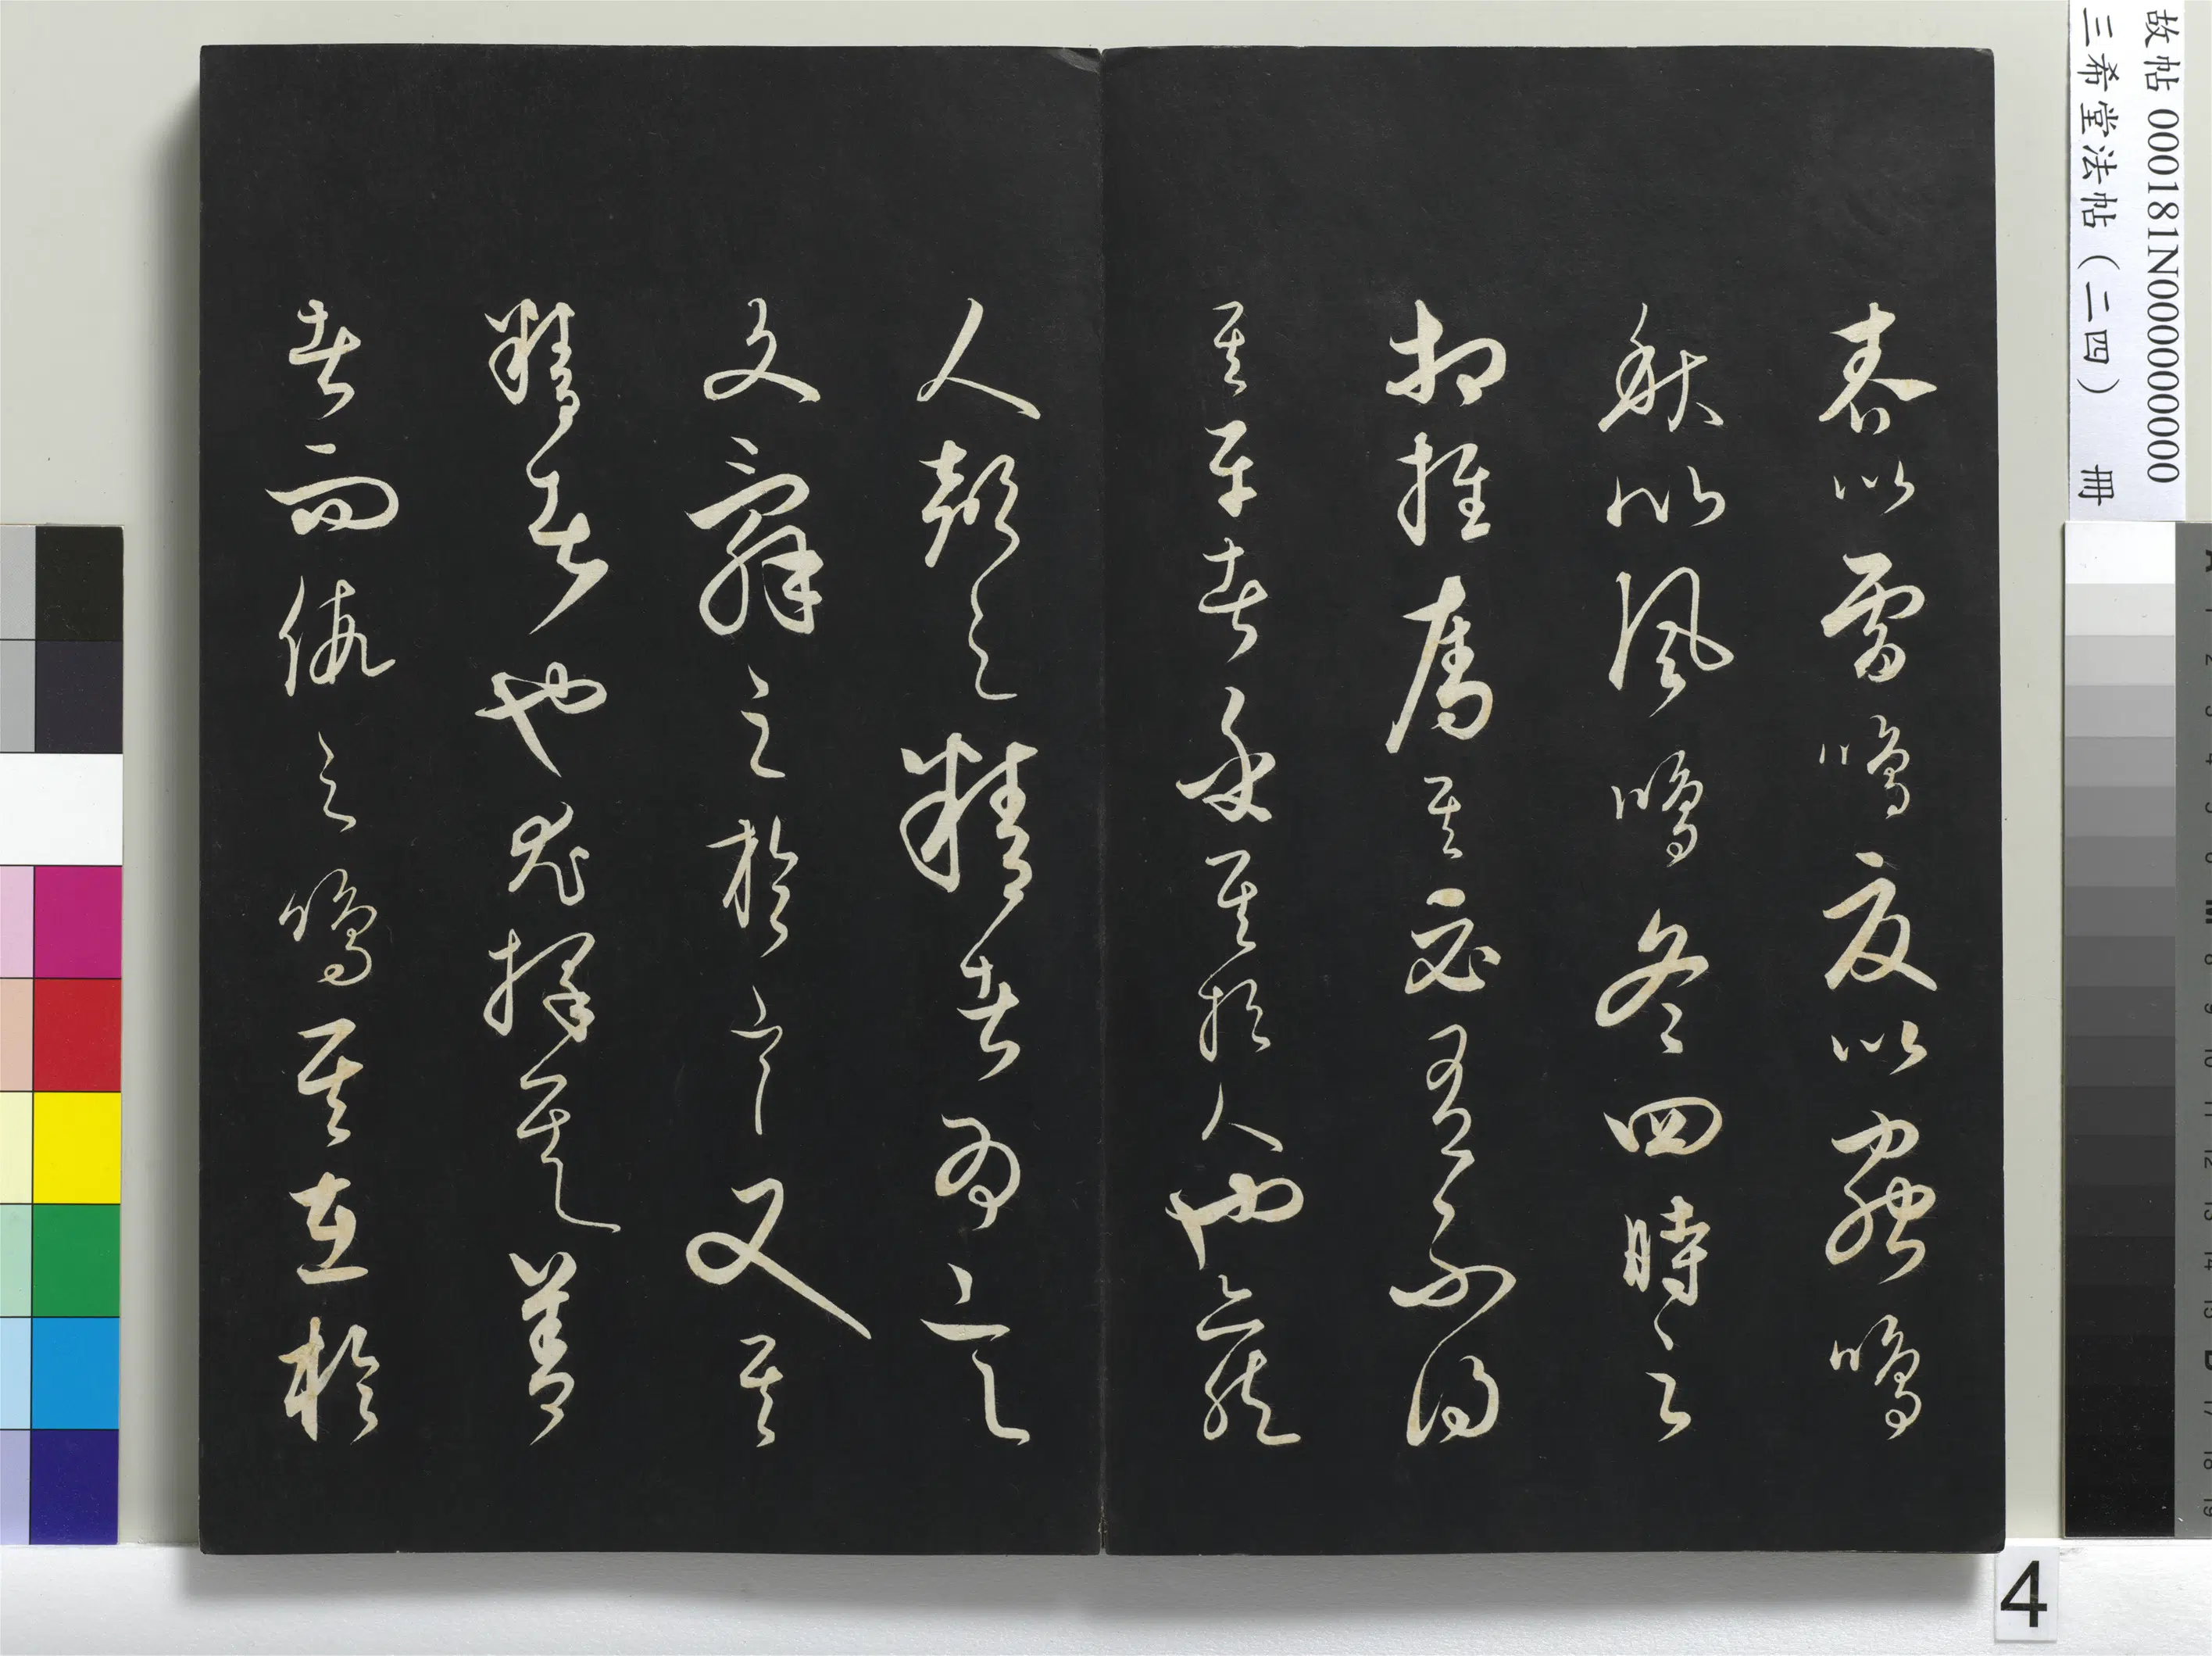 春以雷鳴夏以蟲鳴
秋以風鳴冬四時之
相推奪其必有不得
其平者乎其於人也亦然
人聲之精者為言
文辭之於言又其
精者也尤擇其善
者而假之鳴其在於
故帖 000181N000000000
三希堂法帖（二四） 冊
4